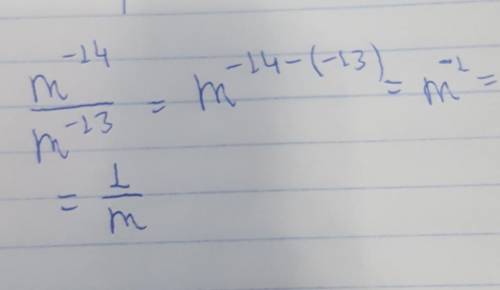 m^-14 / m^-13 = m^-14-(-13) = m^-1 =
= 1/m